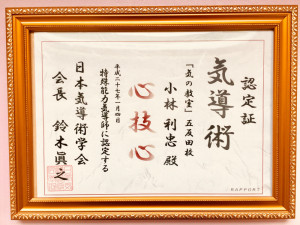 認定証
気導術
「気の教室」五反田校
小林 利忠 殿
心技心
平成二十七年一月四日
特殊能力気導師に認定する
日本気導術学会
会長 鈴木眞之